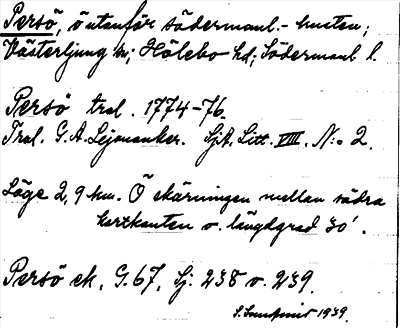 Persö, ö utanför södermanl.-kusten;
Västerljung sn; Hölebo hd; Södermanl l.
Persö tral. 1774-76.
Tral. G. A. Lejonanker. SjA. Litt. VIII. N:o 2.
Läge 2,9 km. Ö skärningen mellan södra
kartkanten o. längdgrad 30'.
Persö ek. G. 67, Sj. 238 o. 239.
1939.